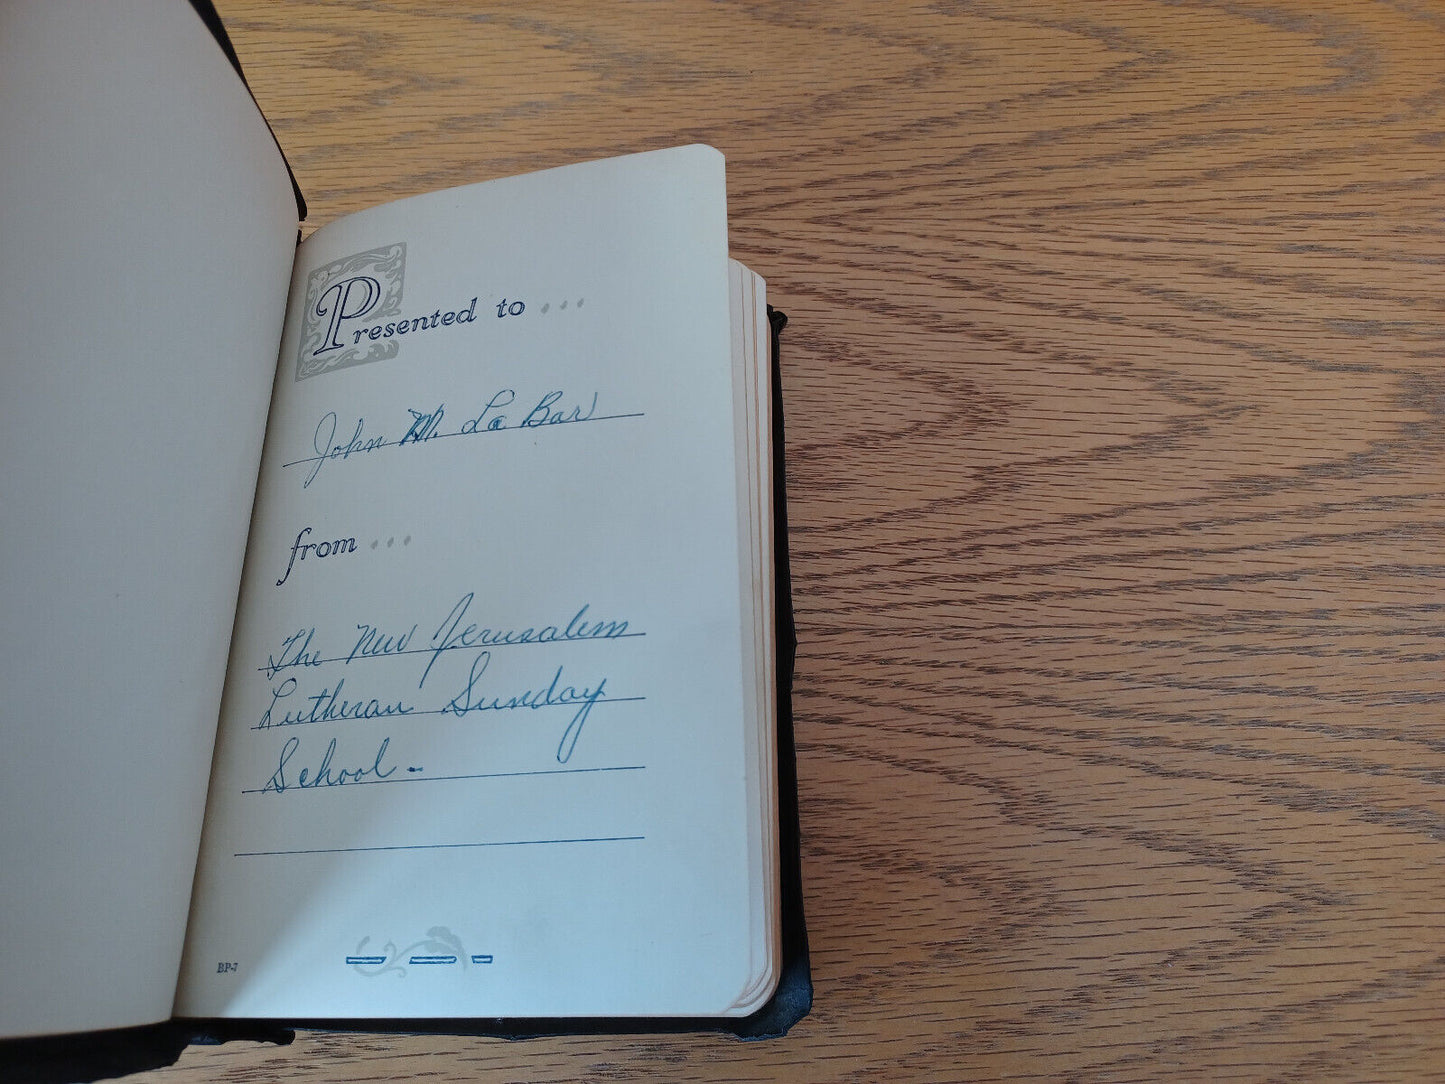 Presented to ...
John M. La Bar
from ...
The New Jerusalem
Lutheran Sunday
School -
BP-7